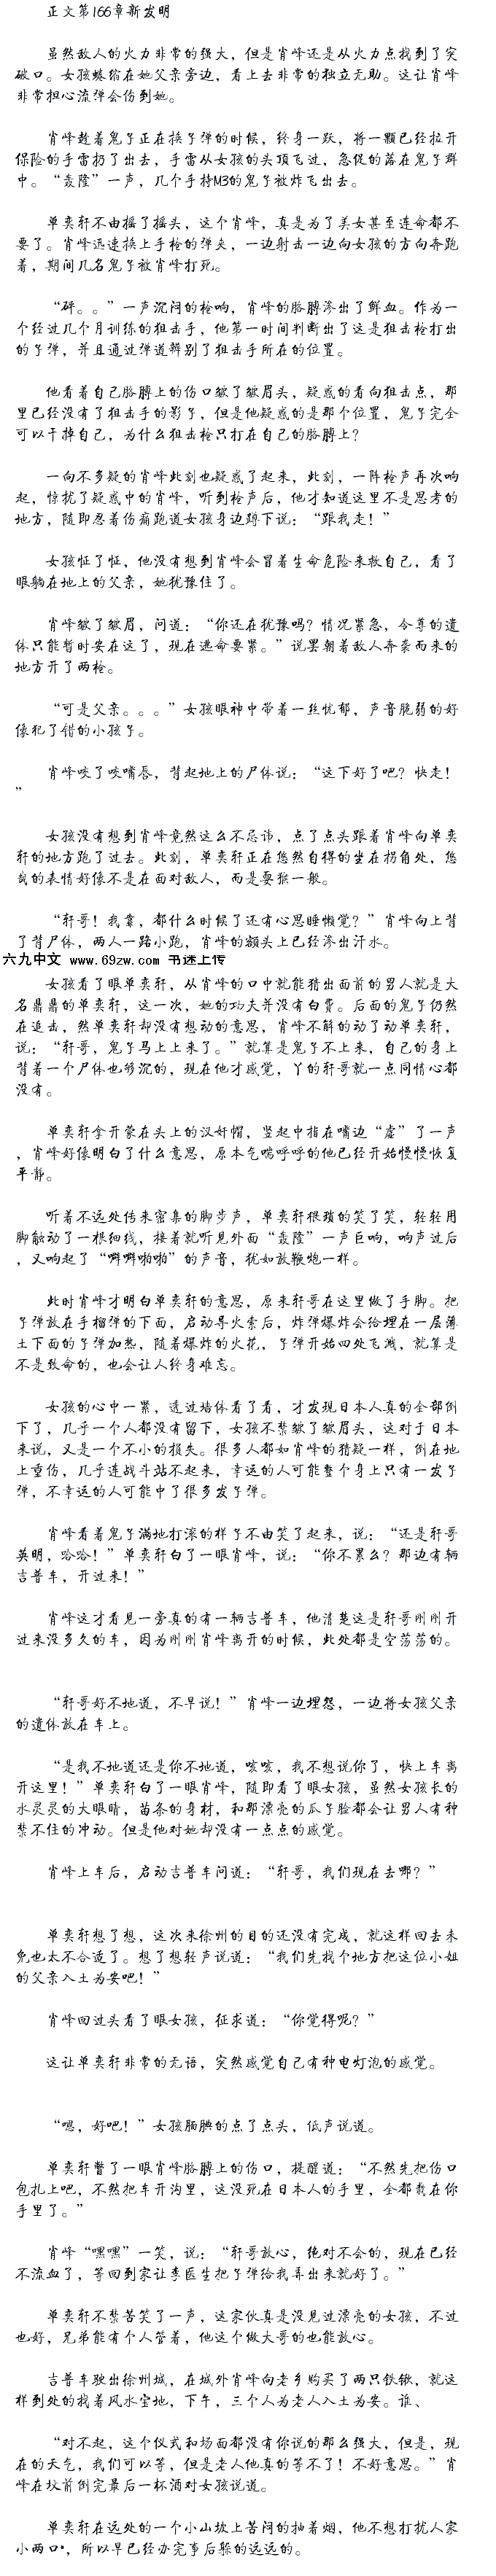 正文第166章新发明
虽然敌人的火力非常的强大，但是肖峰还是从火力点找到了突
破口。女孩蜷缩在她父亲旁边，看上去非常的独立无助。这让肖峰
非常担心流弹会伤到她。
肖峰趁着鬼子正在换子弹的时候，终身一跃，将一颗已经拉开
保险的手雷扔了出去，手雷从女孩的头顶飞过，急促的落在鬼子群
中。“轰隆”一声，几个手持M3的鬼子被炸飞出去。
单奕轩不由摇了摇头，这个肖峰，真是为了美女甚至连命都不
要了。肖峰迅速换上手枪的弹夹，一边射击一边向女孩的方向奔跑
着，期间几名鬼子被肖峰打死。
“砰。。”一声沉闷的枪响，肖峰的胳膊渗出了鲜血。作为一
个经过几个月训练的狙击手，他第一时间判断出了这是狙击枪打出
的子弹，并且通过弹道辨别了狙击手所在的位置。
他看着自己胳膊上的伤口皱了皱眉头，疑惑的看向狙击点，那
里已经没有了狙击手的影子，但是他疑惑的是那个位置，鬼子完全
可以干掉自己，为什么狙击枪只打在自己的胳膊上？
一向不多疑的肖峰此刻也疑惑了起来，此刻，一阵枪声再次响
起，惊扰了疑惑中的肖峰，听到枪声后，他才知道这里不是思考的
地方，随即忍着伤痛跑道女孩身边蹲下说：“跟我走！”
女孩怔了怔，他没有想到肖峰会冒着生命危险来救自己，看了
眼躺在地上的父亲，她犹豫住了。
肖峰皱了皱眉，问道：“你还在犹豫吗？情况紧急，令尊的遗
体只能暂时安在这了，现在逃命要紧。”说罢朝着敌人奔袭而来的
地方开了两枪。
“可是父亲。。。”女孩眼神中带着一丝忧郁，声音脆弱的好
像犯了错的小孩子。
肖峰咬了咬嘴唇，背起地上的尸体说：“这下好了吧？快走！
”
女孩没有想到肖峰竟然这么不忌讳，点了点头跟着肖峰向单奕
轩的地方跑了过去。此刻，单奕轩正在悠然自得的坐在拐角处，悠
哉的表情好像不是在面对敌人，而是耍猴一般。
“轩哥！我靠，都什么时候了还有心思睡懒觉？”肖峰向上背
了背尸体，两人一路小跑，肖峰的额头上已经渗出汗水。
六九中文 www.69zw.com 书迷上传
女孩看了眼单奕轩，从肖峰的口中就能猜出面前的男人就是大
名鼎鼎的单奕轩，这一次，她的功夫并没有白费。后面的鬼子仍然
在追击，然单奕轩却没有想动的意思，肖峰不解的动了动单奕轩，
说：“轩哥，鬼子马上上来了。”就算是鬼子不上来，自己的身上
背着一个尸体也够沉的，现在他才感觉，丫的轩哥就一点同情心都
没有。
单奕轩拿开蒙在头上的汉奸帽，竖起中指在嘴边“虚”了一声
，肖峰好像明白了什么意思，原本气喘呼呼的他已经开始慢慢恢复
平静。
听着不远处传来密集的脚步声，单奕轩猥琐的笑了笑，轻轻用
脚触动了一根细线，接着就听见外面“轰隆”一声巨响，响声过后
，又响起了“噼噼啪啪”的声音，犹如放鞭炮一样。
此时肖峰才明白单奕轩的意思，原来轩哥在这里做了手脚。把
子弹放在手榴弹的下面，启动导火索后，炸弹爆炸会给埋在一层薄
土下面的子弹加热，随着爆炸的火花，子弹开始四处飞溅，就算是
不是致命的，也会让人终身难忘。
女孩的心中一紧，透过墙体看了看，才发现日本人真的全部倒
下了，几乎一个人都没有留下，女孩不禁皱了皱眉头，这对于日本
来说，又是一个不小的损失。很多人都如肖峰的猜疑一样，倒在地
上重伤，几乎连战斗站不起来，幸运的人可能整个身上只有一发子
弹，不幸运的人可能中了很多发子弹。
肖峰看着鬼子满地打滚的样子不由笑了起来，说：“还是轩哥
英明，哈哈！”单奕轩白了一眼肖峰，说：“你不累么？那边有辆
吉普车，开过来！”
肖峰这才看见一旁真的有一辆吉普车，他清楚这是轩哥刚刚开
过来没多久的车，因为刚刚肖峰离开的时候，此处都是空荡荡的。
“轩哥好不地道，不早说！”肖峰一边埋怨，一边将女孩父亲
的遗体放在车上。
“是我不地道还是你不地道，咳咳，我不想说你了，快上车离
开这里！”单奕轩白了一眼肖峰，随即看了眼女孩，虽然女孩长的
水灵灵的大眼睛，苗条的身材，和那漂亮的瓜子脸都会让男人有种
禁不住的冲动。但是他对她却没有一点点的感觉。
肖峰上车后，启动吉普车问道：“轩哥，我们现在去哪？”
单奕轩想了想，这次来徐州的目的还没有完成，就这样回去未
免也太不合适了。想了想轻声说道：“我们先找个地方把这位小姐
的父亲入土为安吧！”
肖峰回过头看了眼女孩，征求道：“你觉得呢？”
这让单奕轩非常的无语，突然感觉自己有种电灯泡的感觉。
“嗯，好吧！”女孩腼腆的点了点头，低声说道。
单奕轩瞥了一眼肖峰胳膊上的伤口，提醒道：“不然先把伤口
包扎上吧，不然把车开沟里，这没死在日本人的手里，全都栽在你
手里了。”
肖峰“嘿嘿”一笑，说：“轩哥放心，绝对不会的，现在已经
不流血了，等回到家让李医生把子弹给我弄出来就好了。”
单奕轩不禁苦笑了一声，这家伙真是没见过漂亮的女孩，不过
也好，兄弟能有个人管着，他这个做大哥的也能放心。
吉普车驶出徐州城，在城外肖峰向老乡购买了两只铁锹，就这
样到处的找着风水宝地，下午，三个人为老人入土为安。谁、
“对不起，这个仪式和场面都没有你说的那么强大，但是，现
在的天气，我们可以等，但是老人他真的等不了！不好意思。”肖
峰在坟前倒完最后一杯酒对女孩说道。
单奕轩在远处的一个小山坡上苦闷的抽着烟，他不想打扰人家
小两口，所以早已经办完事后躲的远远的。